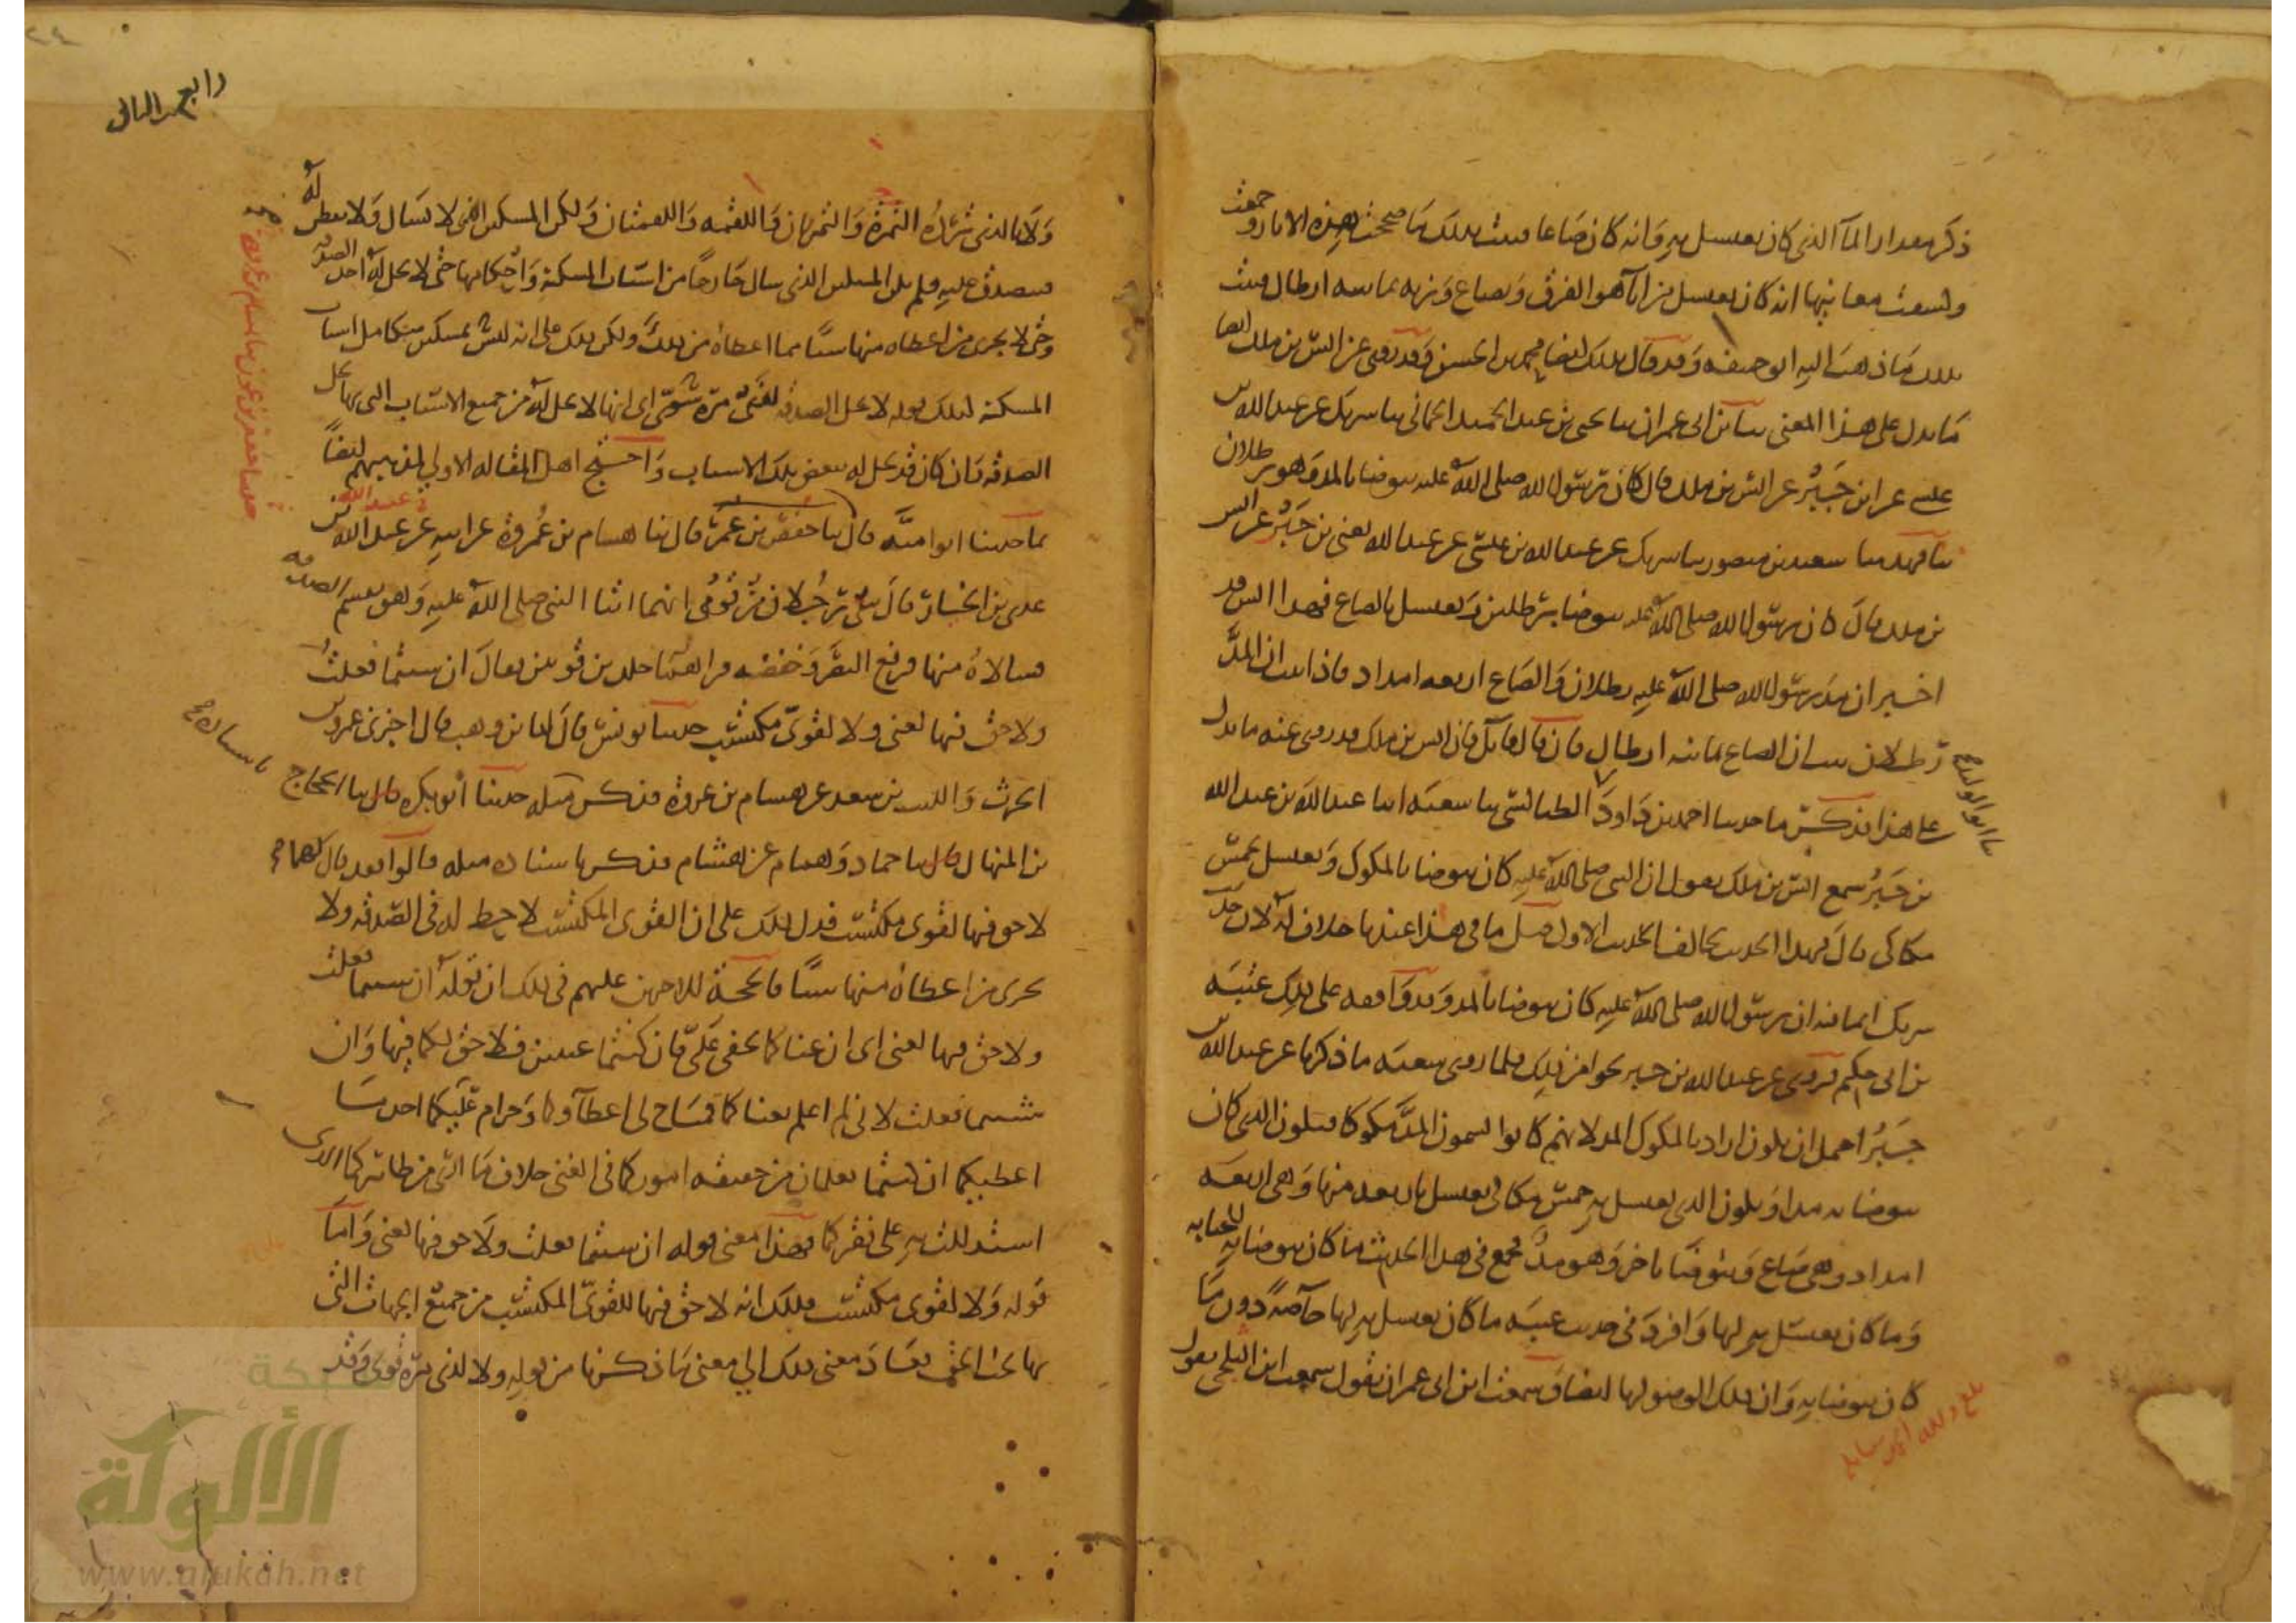 ذكر مقدار الماء الذي كان يغتسل به وانه كان صاعا فثبت بذلك لما صححت هذه الاثار وجمعت
وكشفت معانيها انه كان يغتسل من اناء هو الفرق وبصاع وزنه ثمانية ارطال فثبت
بذلك ما ذهب اليه ابو حنيفه وقد قال بذلك ايضا محمد بن الحسن وقد روي عن انس بن ملك ايضا
ما يدل على هذا المعنى حدثنا ابن ابي عمران ثنا يحيى بن عبد الحميد الحماني ثنا شريك عن عبد الله بن
عيسى عن ابن جبر عن انس بن ملك قال كان رسول الله صلى الله عليه يتوضا بالمد وهو رطلان
حدثنا فهد ثنا سعيد بن منصور ثنا شريك عن عبد الله بن عيسى عن عبد الله يعني بن جبر عن انس
بن ملك قال كان رسول الله صلى الله عليه يتوضا برطلين ويغتسل بالصاع فهذا انس قد
اخبر ان مد رسول الله صلى الله عليه رطلان والصاع اربعه امداد فاذا ثبت ان المد
رطلان ثبت ان الصاع ثمانيه ارطال فان قال قائل فان انس بن ملك قد روي عنه ما يدل
على هذا فذكر ما حدثنا احمد بن داود الطيالسي ثنا شعبه انبا عبد الله بن عبد الله
بن جبر سمع انس بن ملك يقول ان النبي صلى الله عليه كان يتوضا بالمكوك ويغتسل بخمس
مكاكي قال فهذا الحديث يخالف الحديث الاول قيل ما في هذا عندنا خلاف له لان حديث
شريك انما فيه ان رسول الله صلى الله عليه كان يتوضا بالمد وقد وافقه على ذلك عتبه
بن ابي حكيم فروى عن عبد الله بن جبر نحوا من ذلك فلما روى شعبه ما ذكرنا عن عبد الله بن
جبر احتمل ان يكون اراد بالمكوك المد لانهم كانوا يسمون المد مكوكا فيكون الذي كان
يتوضا به مدا ويكون الذي يغتسل به خمس مكاكي يغتسل باربعه منها وهي اربعه
امداد وهي صاع ويتوضا باخر وهو مد فجمع في هذا الحديث ما كان يتوضا به للجنابه
وما كان يغتسل به لها وافرد في حديث عتبه ما كان يغتسل به لها خاصه دون ما
كان يتوضا به وان ذلك الوضو لها ايضا وسمعت ابن ابي عمران يقول سمعت ابن الثلجي يقول
رابع الثاني
ولا بالذي ترده التمرة والتمرتان واللقمه واللقمتان ولكن المسكين الذي لا يسال ولا يفطن له
فيتصدق عليه فلم يكن المسكين الذي يسال خارجا من اسباب المسكنة واحكامها حتى لا يحل له اخذ الصدقه
وحتى لا يجزى من اعطاه منها شيا مما اعطاه من ذلك ولكن ذلك على انه ليس بمسكين متكامل اسباب
المسكنه فكذلك قوله لا تحل الصدقه لذي مرة سوي اي انها لا تحل له من جميع الاسباب التي بها تحل
الصدقه وان كان قد تحل له ببعض تلك الاسباب واحتج اهل المقاله الاولي لمذهبهم ايضا
بما حدثنا ابو اميه قال ثنا جعفر بن عون قال ثنا هشام بن عروة عن ابيه عن عبد الله بن
عدي بن الخيار قال حدثني رجلان من قومي انهما اتيا النبي صلى الله عليه وهو يقسم الصدقه
فسالاه منها فرفع البصر وخفضه فراهما جلدين قويين فقال ان شيتما فعلت
ولا حق فيها لغني ولا لقوي مكتسب حدثنا يونس قال انبا بن وهب قال اخبرني عمرو بن
الحرث والليث بن سعد عن هشام بن عروة فذكر مثله حدثنا ابو بكره قال ثنا الحجاج
بن المنهال قال ثنا حماد وهمام عن هشام فذكر باسناده مثله قالوا فقد قال لهما
لا حق فيها لقوي مكتسب فدل ذلك على ان القوي المكتسب لا حظ له في الصدقه ولا
تجزى من اعطاه منها شيا فالحجة للاخرين عليهم في ذلك ان قوله ان شيتما فعلت
ولا حق فيها لغني اي ان غناكما يخفى علي فان كنتما غنيين فلا حق لكما فيها وان
شيتما فعلت لاني لم اعلم بغناكما فمباح لي اعطاوكما وحرام عليكما اخذ ما
اعطيكما ان كنتما تعلمان من حقيقه اموركما في الغنى خلاف ما ارى من ظاهركما الذي
استدللت به على فقركما فهذا معنى قوله ان شيتما فعلت ولا حق فيها لغني واما
قوله ولا لقوي مكتسب فذلك انه لا حق فيها للقوي المكتسب من جميع الجهات التي
بها يجب الحق فعاد معنى ذلك الى معنى ما ذكرنا من قوله ولا لذي مرة قوي وقد
شبكة
الألوكة
www.alukah.net